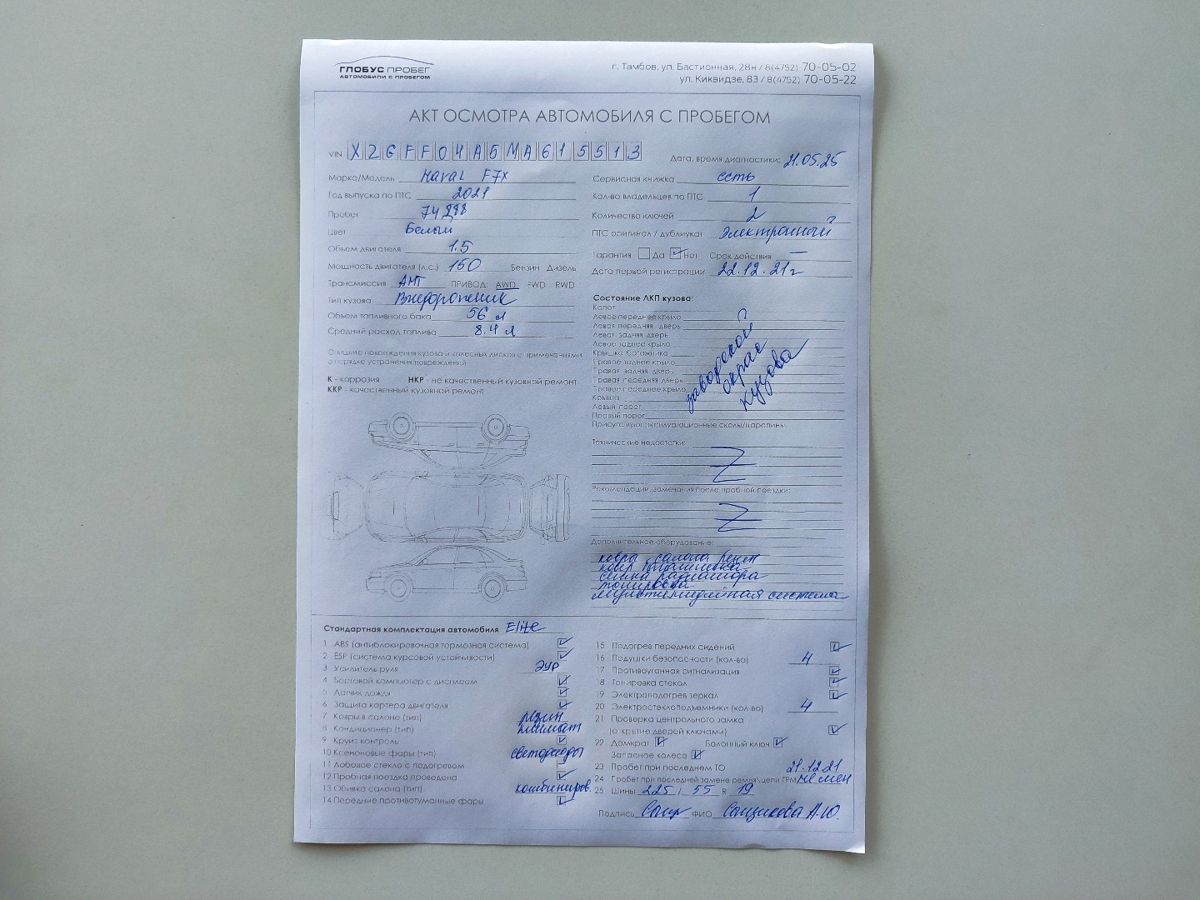 ГЛОБУС ПРОБЕГ
АВТОМОБИЛИ С ПРОБЕГОМ
г. Тамбов, ул. Бастионная, 28н / 8(4752) 70-05-02
ул. Киквидзе, 83 / 8(4752) 70-05-22
АКТ ОСМОТРА АВТОМОБИЛЯ С ПРОБЕГОМ
VIN X2GFF04A5MA615513
Дата, время диагностики: 21.05.25
Марка/Модель Haval F7X
Год выпуска по ПТС 2021
Пробег 74 288
Цвет Белый
Объем двигателя 1.5
Мощность двигателя (л.с.) 150 Бензин Дизель
Трансмиссия АМТ ПРИВОД: AWD FWD RWD
Тип кузова Внедорожник
Объем топливного бака 56 л
Средний расход топлива 8.4 л
Сервисная книжка есть
Кол-во владельцев по ПТС 1
Количество ключей 2
ПТС оригинал / дубликат Электронный
Гарантия Да Нет Срок действия —
Дата первой регистрации 22.12.21г
повреждения кузова и колесных дисков с примечаниями
о порядке устранения повреждений
К - коррозия НКР - не качественный кузовной ремонт
ККР - качественный кузовной ремонт
Состояние ЛКП кузова:
Капот
Левое переднее крыло
Левая передняя дверь
Левая задняя дверь
Левое заднее крыло
Крышка багажника
Правое заднее крыло
Правая задняя дверь
Правая передняя дверь
Правое переднее крыло
Крыша
Левый порог
Правый порог
Присутствуют эксплуатационные сколы/царапины
заводской
окрас
кузова
Технические недостатки:
Z
Рекомендации, замечания после пробной поездки:
Z
Дополнительное оборудование:
салона резин
сетка радиатора
тонировка
мультимедийная система
Стандартная комплектация автомобиля Elite
1 ABS (антиблокировочная тормозная система)
2 ESP (система курсовой устойчивости)
3 Усилитель руля ЭУР
4 Бортовой компьютер с дисплеем
5 Датчик дождя
6 Защита картера двигателя
7 Ковры в салоне (тип) резин
8 Кондиционер (тип) климат
9 Круиз контроль
10 Ксеноновые фары (тип) светодиоды
11 Лобовое стекло с подогревом
12 Пробная поездка проведена
13 Обивка салона (тип) комбиниров.
14 Передние противотуманные фары
15 Подогрев передних сидений
16 Подушки безопасности (кол-во) 4
17 Противоугонная сигнализация
18 Тонировка стекол
19 Электроподогрев зеркал
20 Электростеклоподъемники (кол-во) 4
21 Проверка центрального замка
(открытие дверей ключами)
22 Домкрат Балонный ключ
Запасное колесо
23 Пробег при последнем ТО 21.12.21
24 Пробег при последней замене ремня/цепи ГРМ не мен
25 Шины 225 / 55 R 19
Подпись ФИО Сощикова А.Ю.